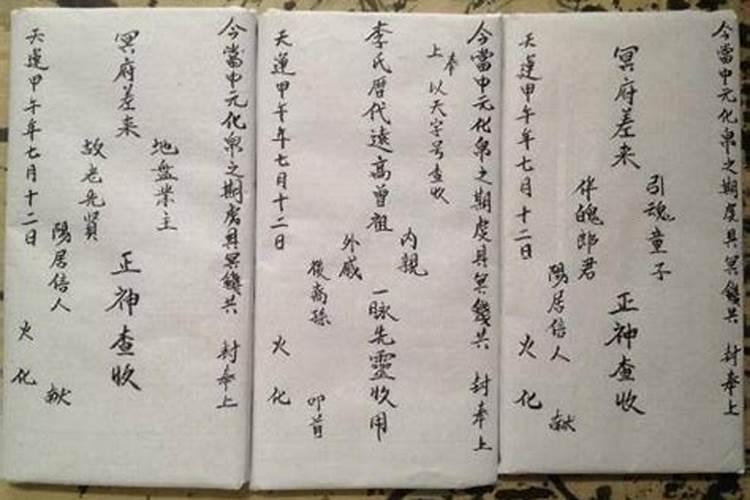 今當中元化帛之期虔具冥錢共 封奉上
引魂童子
冥府差来 正神查收
伴魄郎君
陽居信人 献
天運甲午年七月十二日 火化
今當中元化帛之期虔具冥錢共 封奉上
奉上以天字号查收
內親
李氏歷代遠高曾祖 一脉先靈收用
外戚
後裔孫 叩首
天運甲午年七月十二日 火化
今當中元化帛之期虔具冥錢共 封奉上
地盘業主
冥府差来 正神查收
故老先賢
陽居信人 献
天運甲午年七月十二日 火化